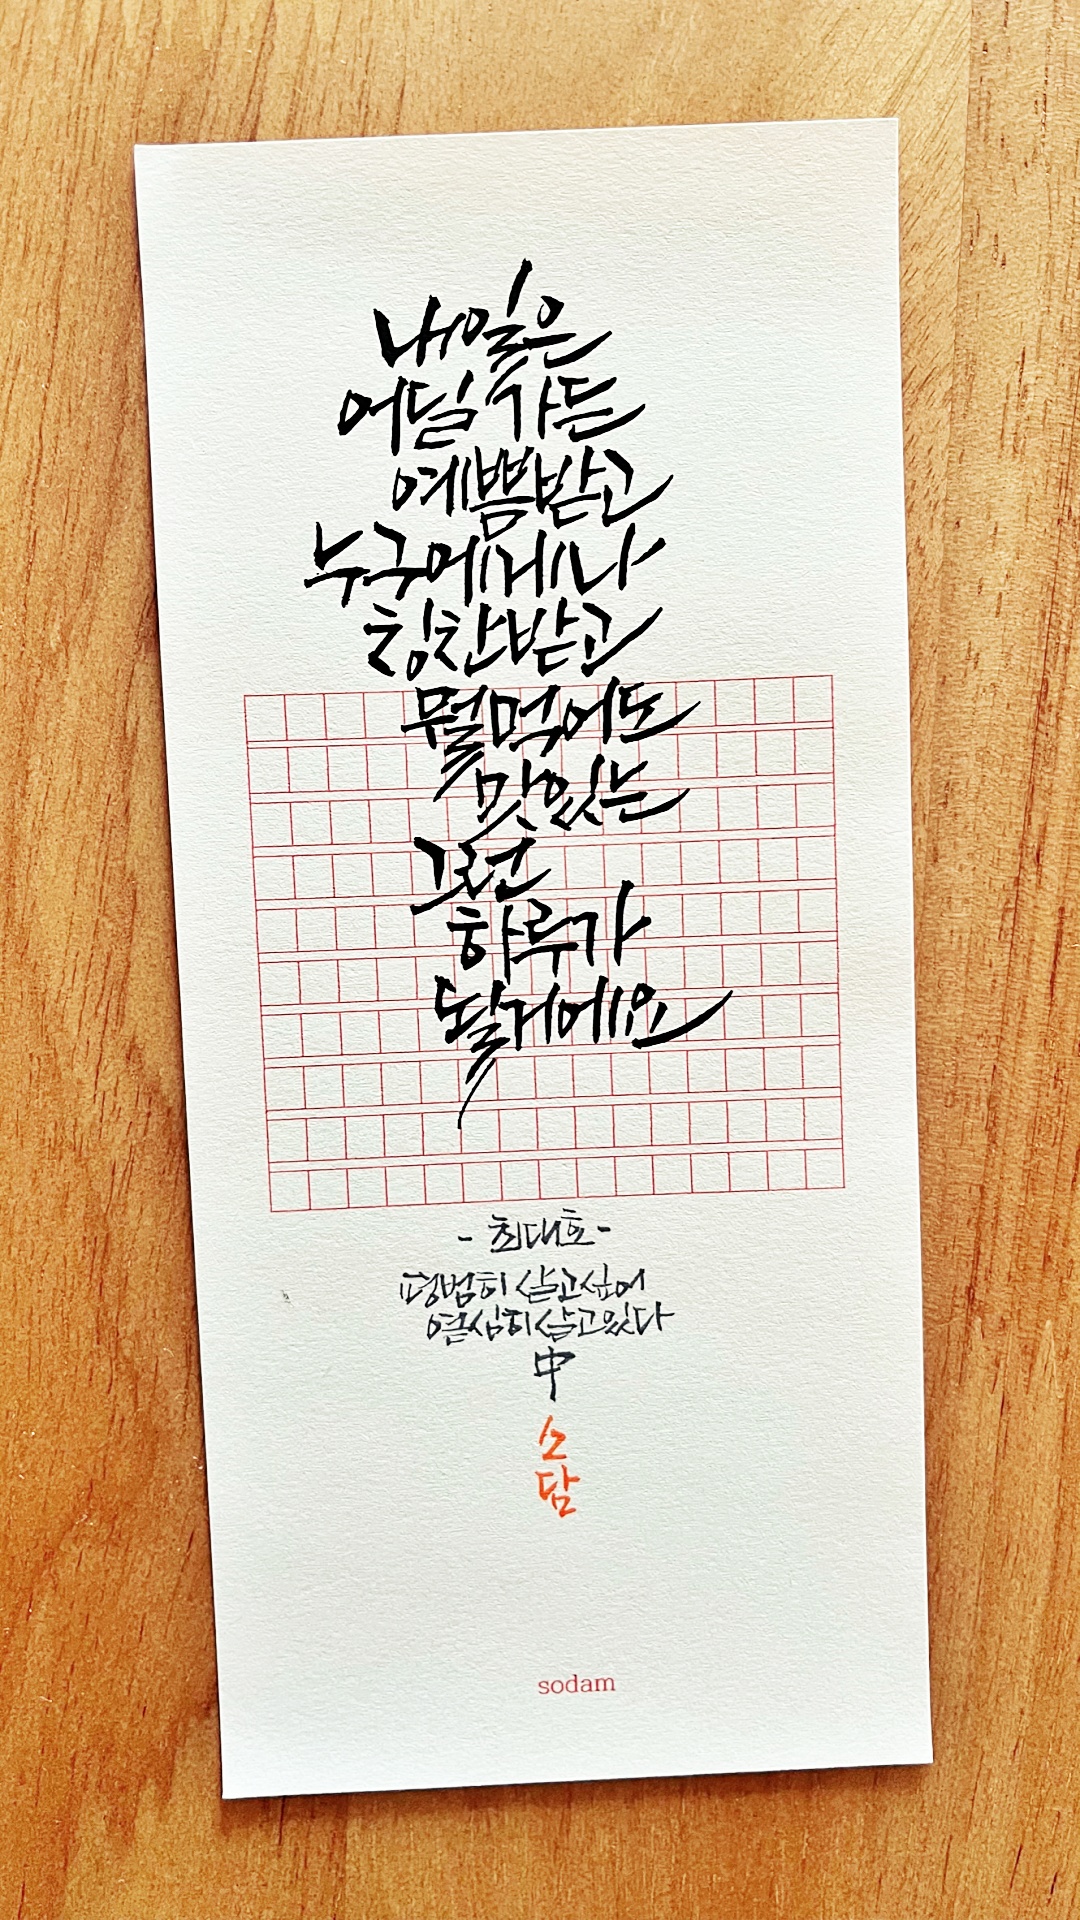 내일은
어딜 가든
예쁨받고
누구에게나
칭찬받고
뭘먹어도
맛있는
그런
하루가
될거에요
- 최대호 -
평범히 살고싶어
열심히 살고있다
中
소
담
sodam